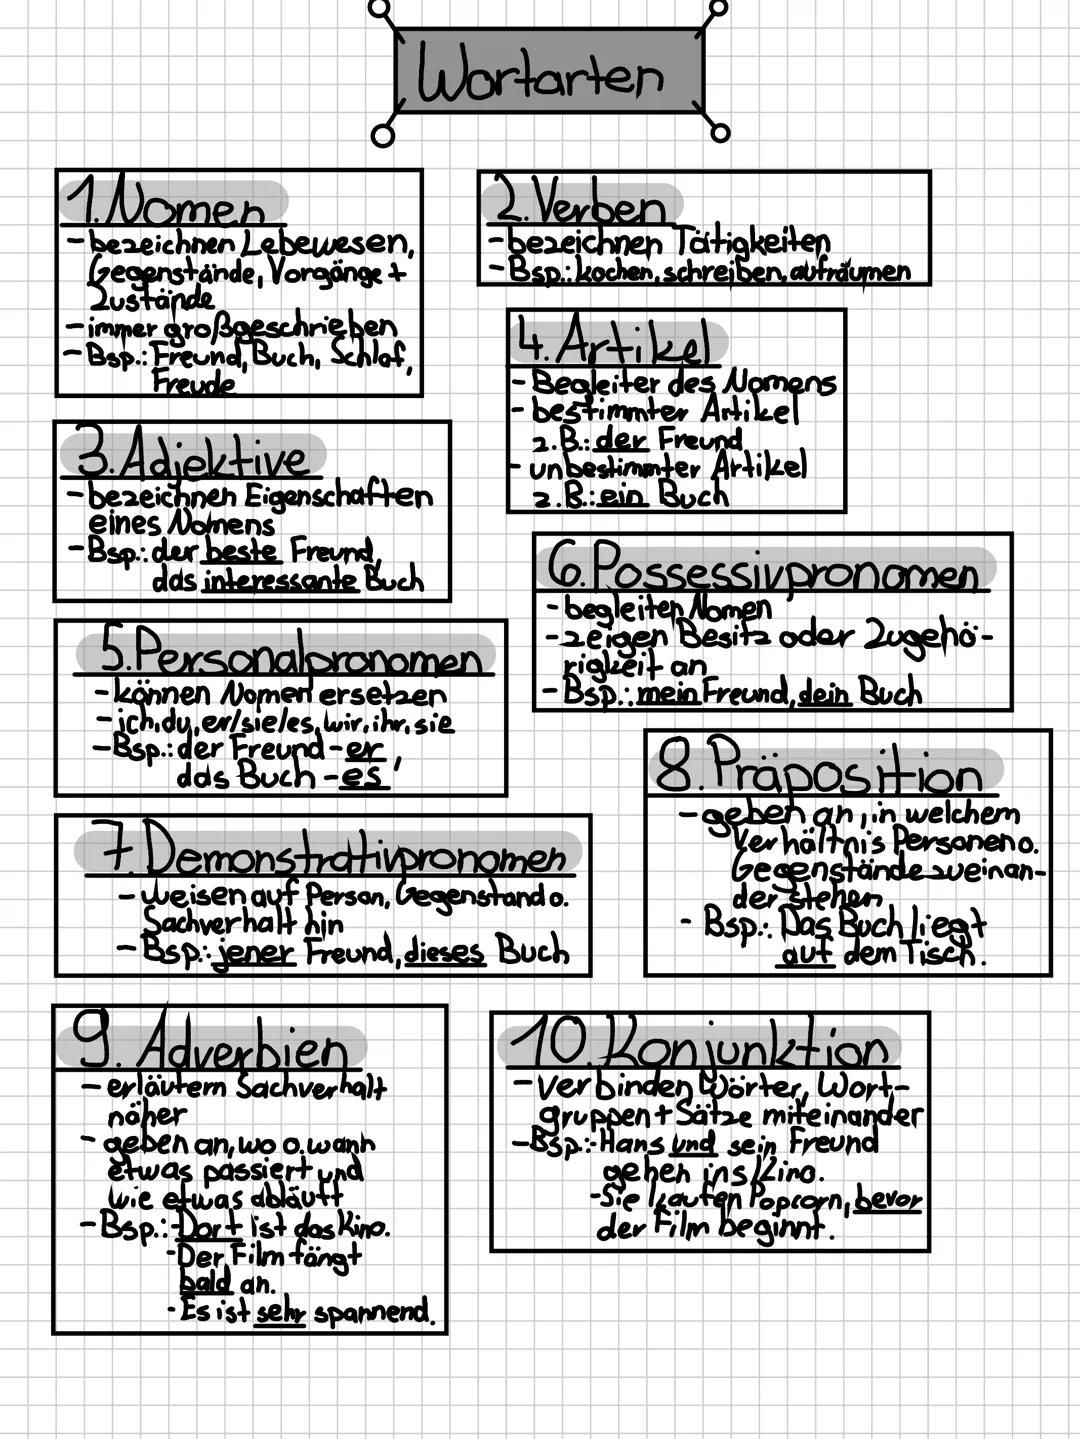 Wortarten
1. Nomen
- bezeichnen Lebewesen,
Gegenstände, Vorgänge +
Zustände
- immer großgeschrieben
- Bsp.: Freund, Buch, Schlaf,
Freude
2. Verben
- bezeichnen Tätigkeiten
- Bsp.: kochen, schreiben, aufräumen
3. Adjektive
- bezeichnen Eigenschaften
eines Nomens
- Bsp.: der beste Freund,
das interessante Buch
4. Artikel
- Begleiter des Nomens
- bestimmter Artikel
z.B.: der Freund
- unbestimmter Artikel
z.B.: ein Buch
5. Personalpronomen
- können Nomen ersetzen
- ich, du, er/sie/es, wir, ihr, sie
- Bsp.: der Freund - er,
das Buch - es
6. Possessivpronomen
- begleiten Nomen
- zeigen Besitz oder Zugehö-
rigkeit an
- Bsp.: mein Freund, dein Buch
7. Demonstrativpronomen
- weisen auf Person, Gegenstand o.
Sachverhalt hin
- Bsp.: jener Freund, dieses Buch
8. Präposition
- geben an, in welchem
Verhältnis Personen o.
Gegenstände zueinan-
der stehen
- Bsp.: Das Buch liegt
auf dem Tisch.
9. Adverbien
- erläutern Sachverhalt
näher
- geben an, wo o. wann
etwas passiert und
wie etwas abläuft
- Bsp.: - Dort ist das Kino.
- Der Film fängt
bald an.
- Es ist sehr spannend.
10. Konjunktion
- verbinden Wörter, Wort-
gruppen + Sätze miteinander
- Bsp.: - Hans und sein Freund
gehen ins Kino.
- Sie kaufen Popcorn, bevor
der Film beginnt.